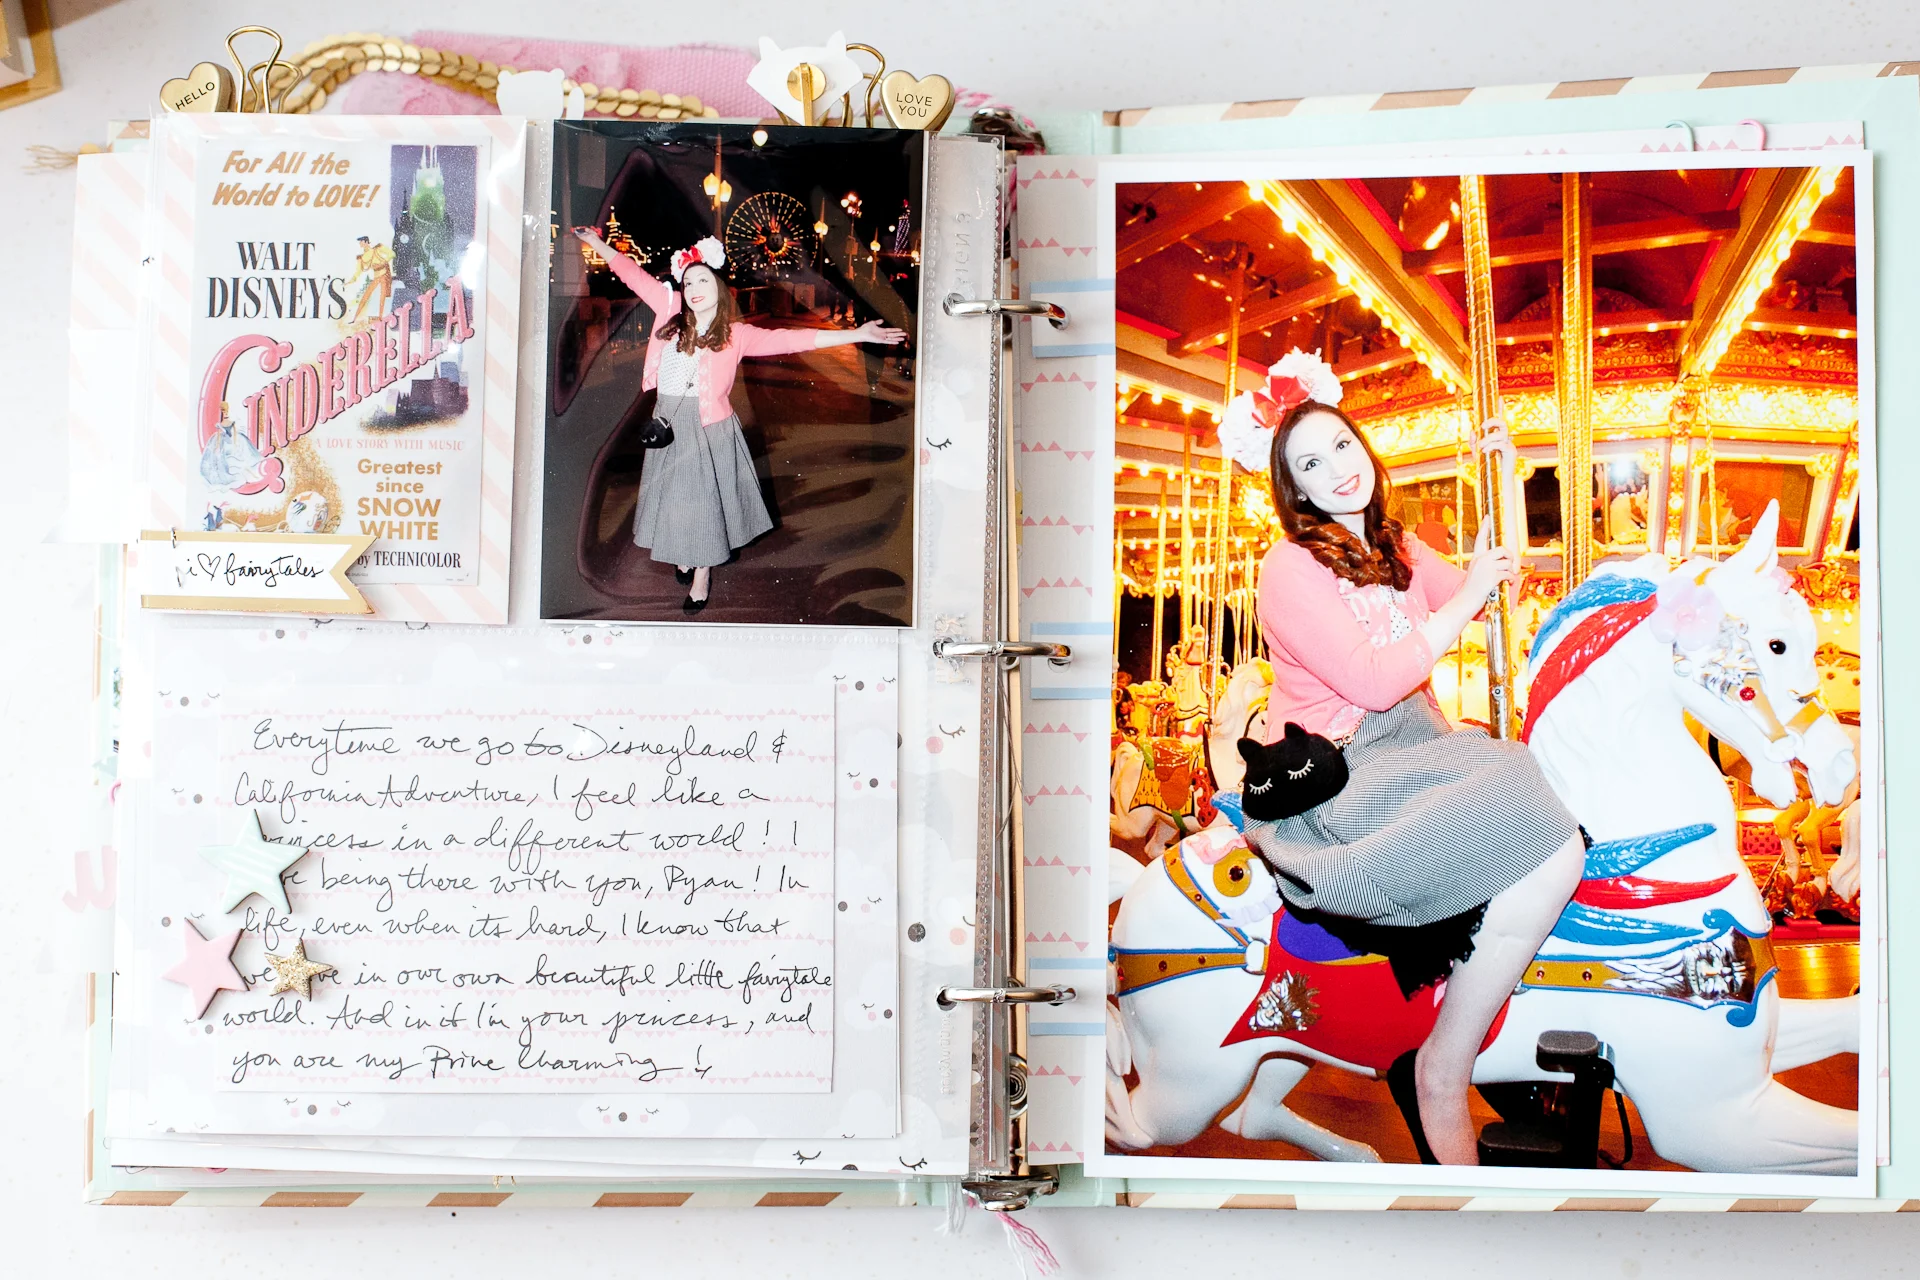 HELLO
LOVE
YOU
For All the
World to LOVE!
WALT
DISNEY'S
CINDERELLA
A LOVE STORY WITH MUSIC
Greatest
since
SNOW
WHITE
by TECHNICOLOR
i ♡ fairytales
Everytime we go to Disneyland &
California Adventure, I feel like a
princess in a different world! I
being there with you, Ryan! In
life, even when its hard, I know that
we in our own beautiful little fairytale
world. And in it I'm your princess, and
you are my Prine Charming!